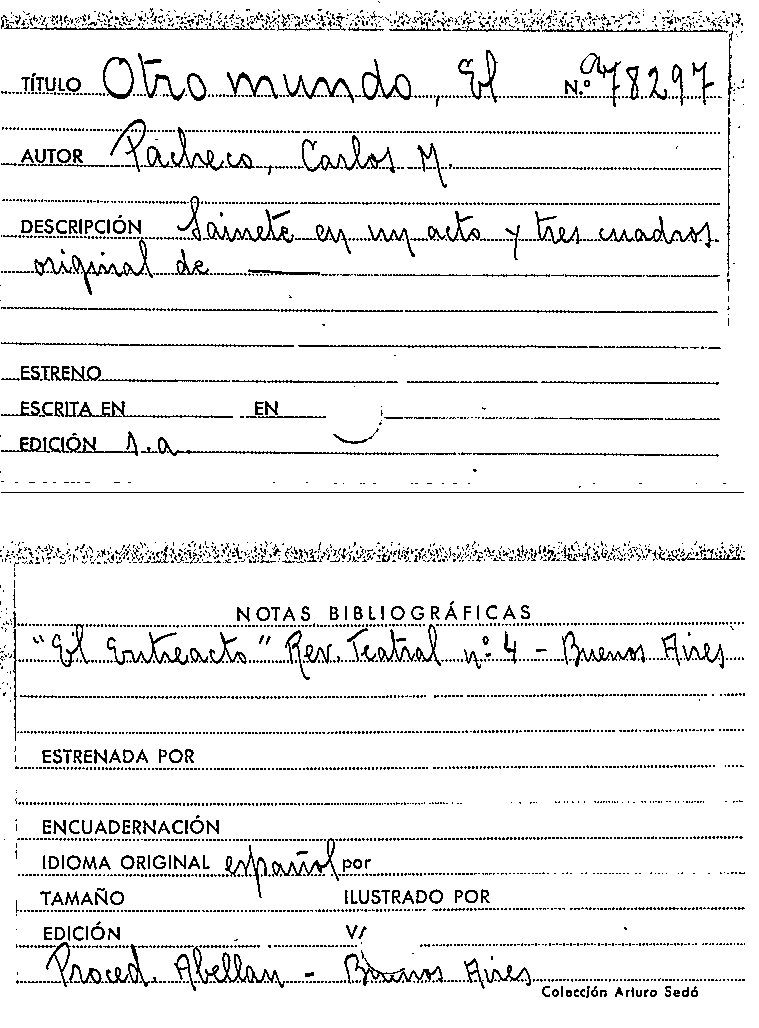 TÍTULO Otro mundo, El N.º a78297
AUTOR Pacheco, Carlos M.
DESCRIPCIÓN Sainete en un acto y tres cuadros
original de ———
ESTRENO
ESCRITA EN EN
EDICIÓN s.a.
NOTAS BIBLIOGRÁFICAS
"El Entreacto" Rev. Teatral nº 4 - Buenos Aires
ESTRENADA POR
ENCUADERNACIÓN
IDIOMA ORIGINAL español por
TAMAÑO ILUSTRADO POR
EDICIÓN V/
Proced. Abellan - Buenos Aires
Colección Arturo Sedó